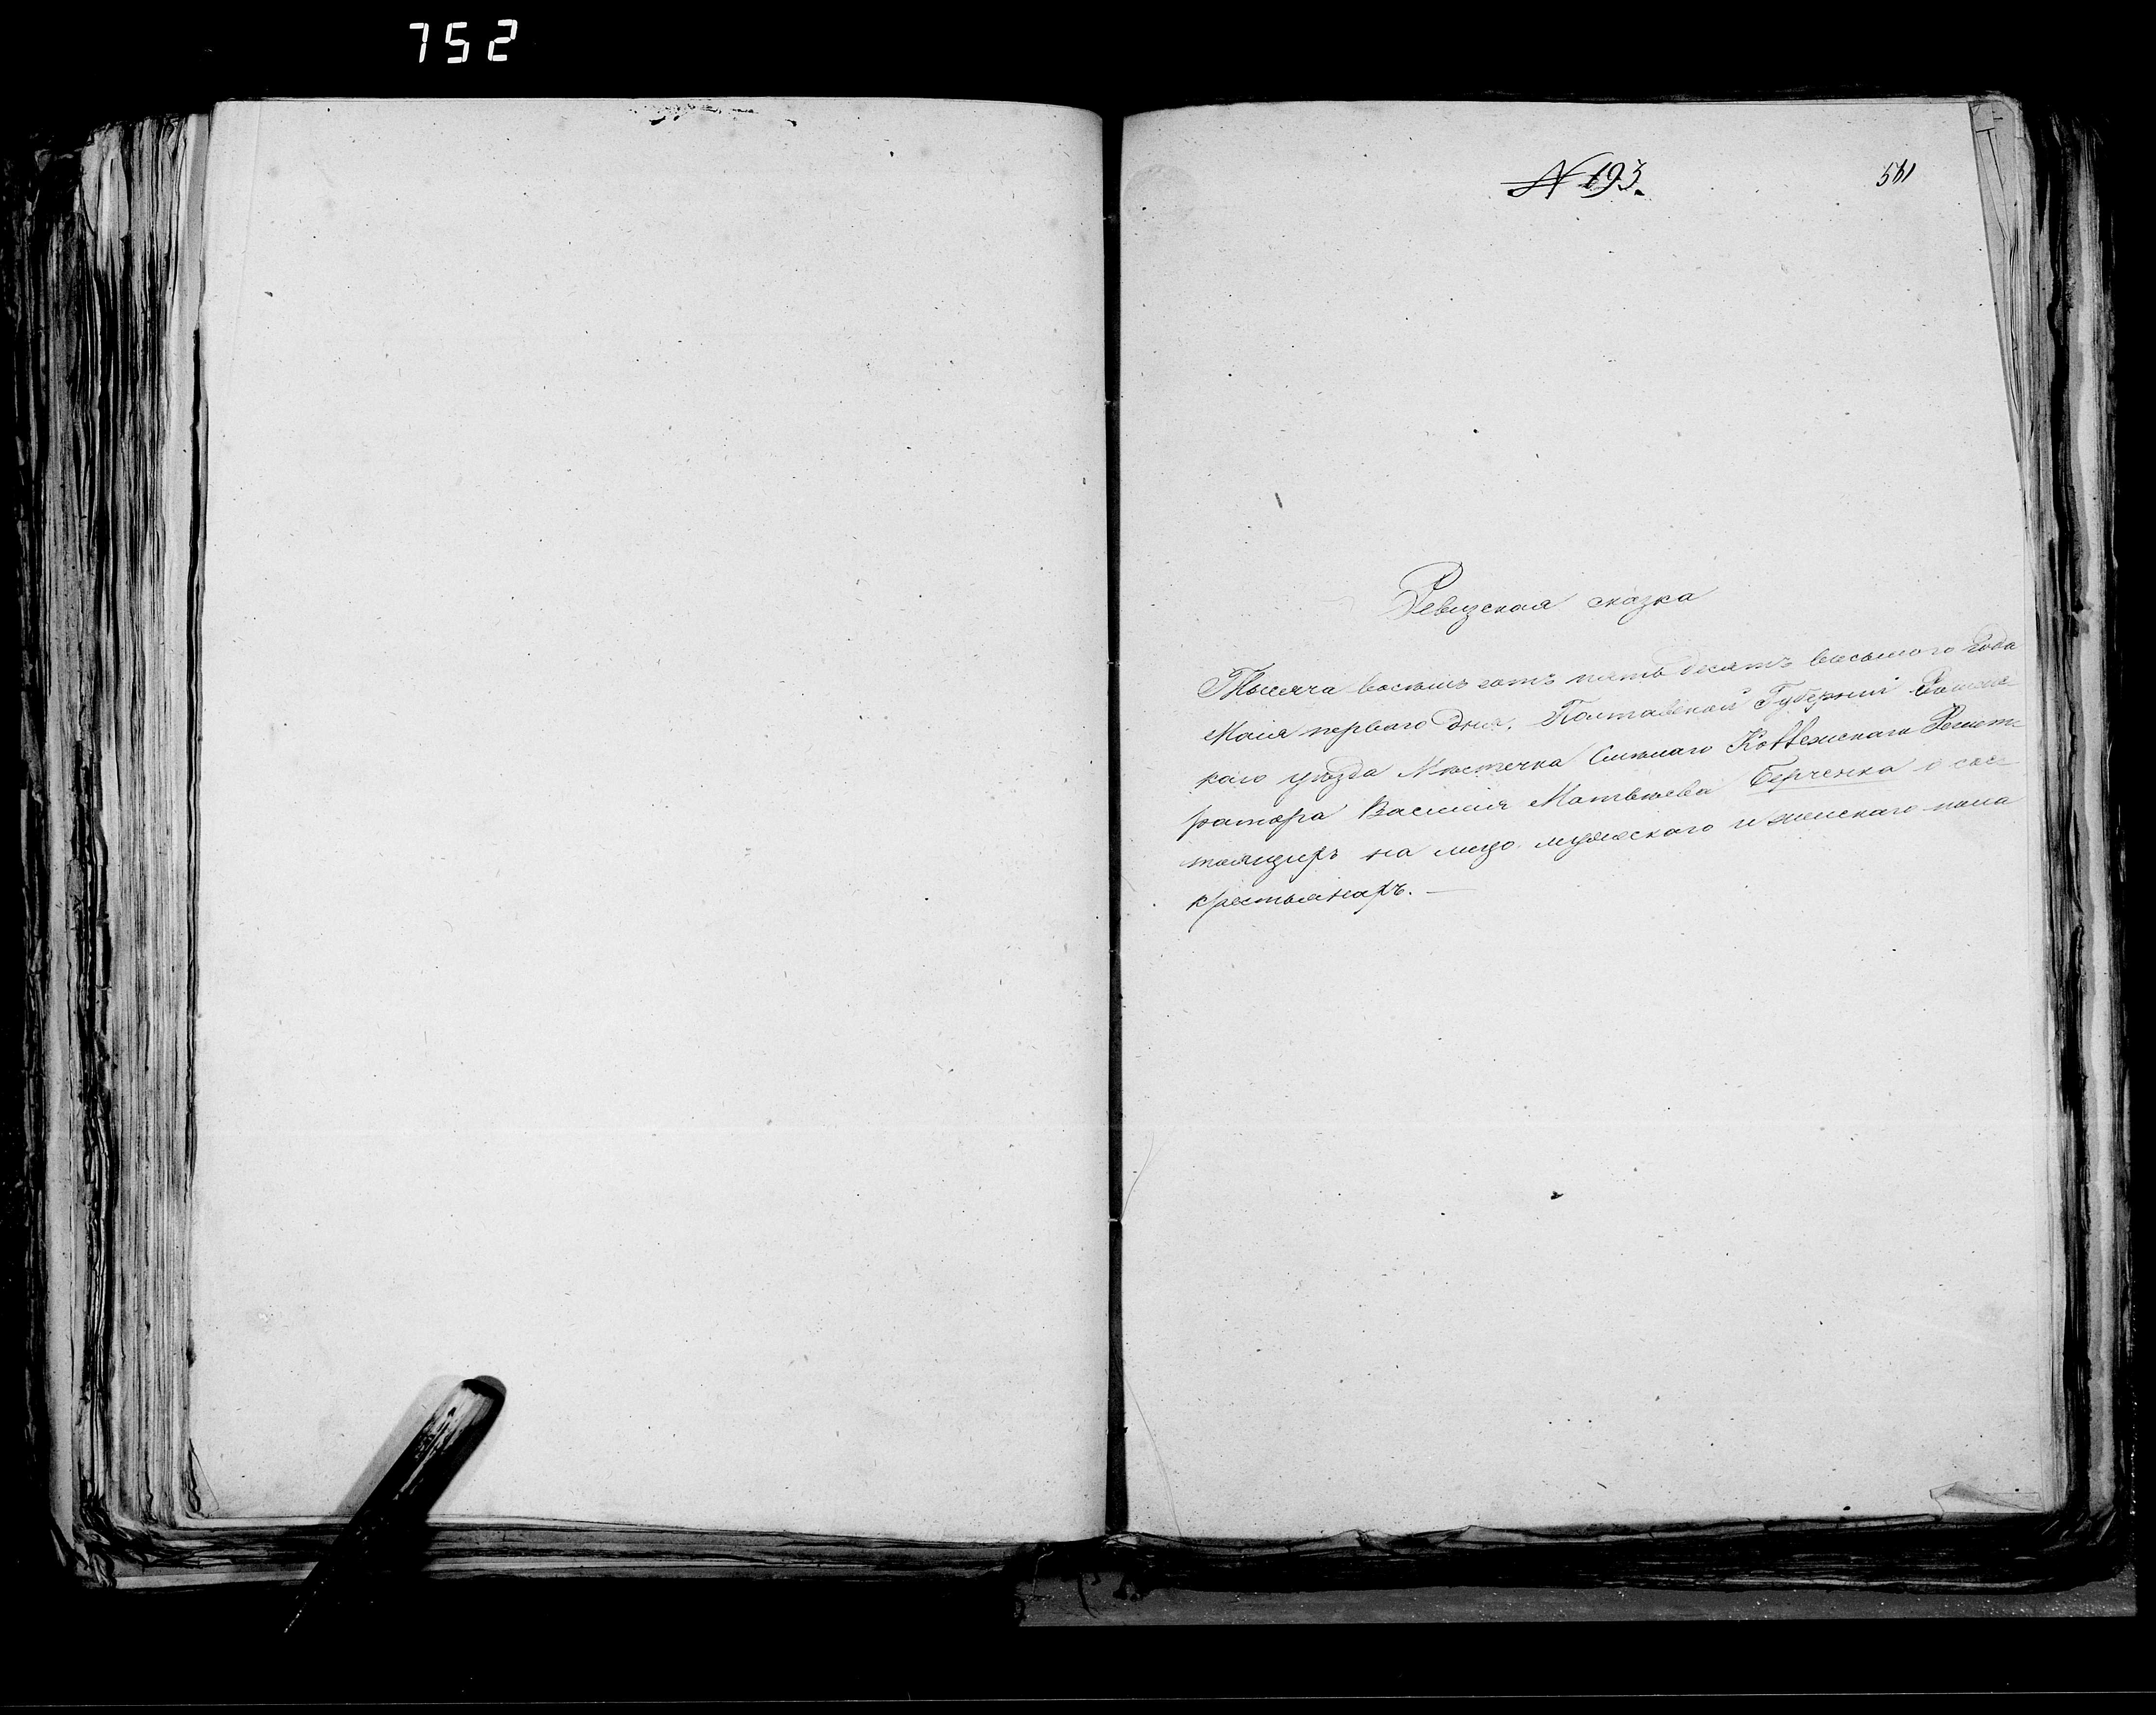 752
№ 193.
561
Ревизская сказка
Тысяча восемь сотъ пять десятъ восьмого года
Маія перваго дня, Полтавской Губерніи Роменс-
каго уѣзда Мѣстечка Смѣлаго Коллежскаго Регист-
ратора Василія Матвѣева Берченка о сос-
тоящихъ на лицо мужескаго и женскаго пола
крестьянахъ. —